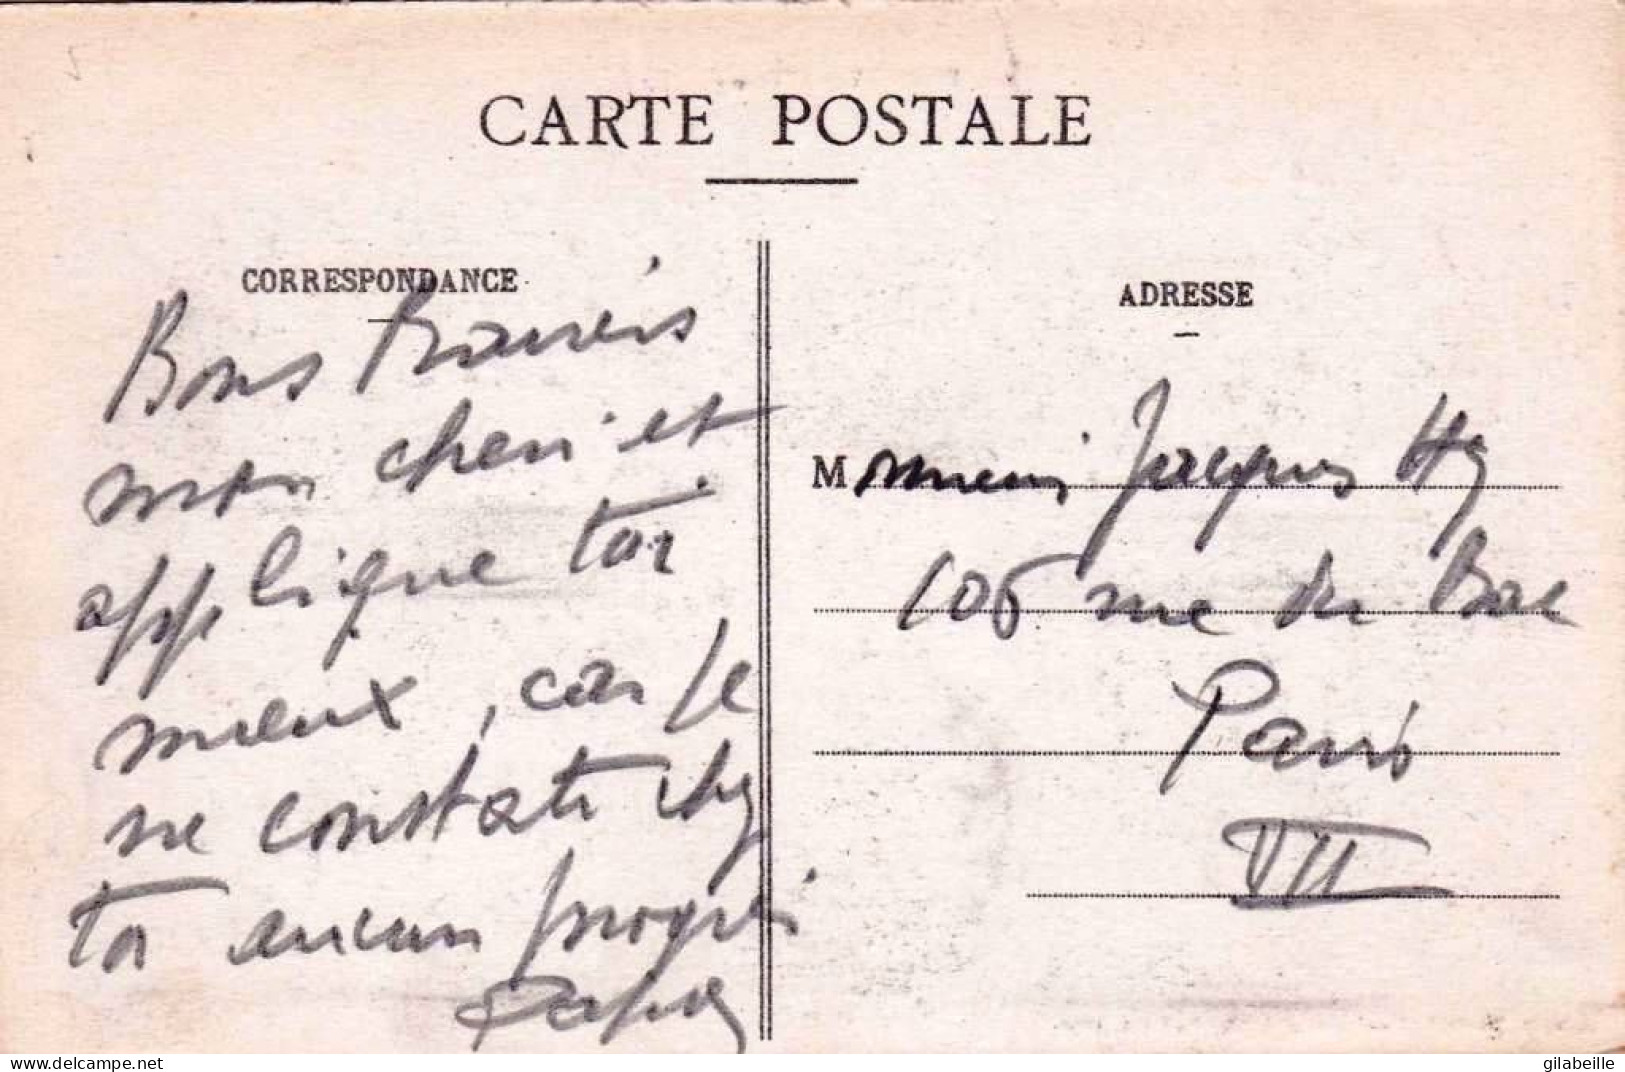 CARTE POSTALE
CORRESPONDANCE
Bons Baisers
mon cheri et
applique toi
mieux, car je
ne constate chez
toi aucun progrès
Papa
ADRESSE
M onsieur Jacques
106 rue du Bac
Paris
VII
gilabeille